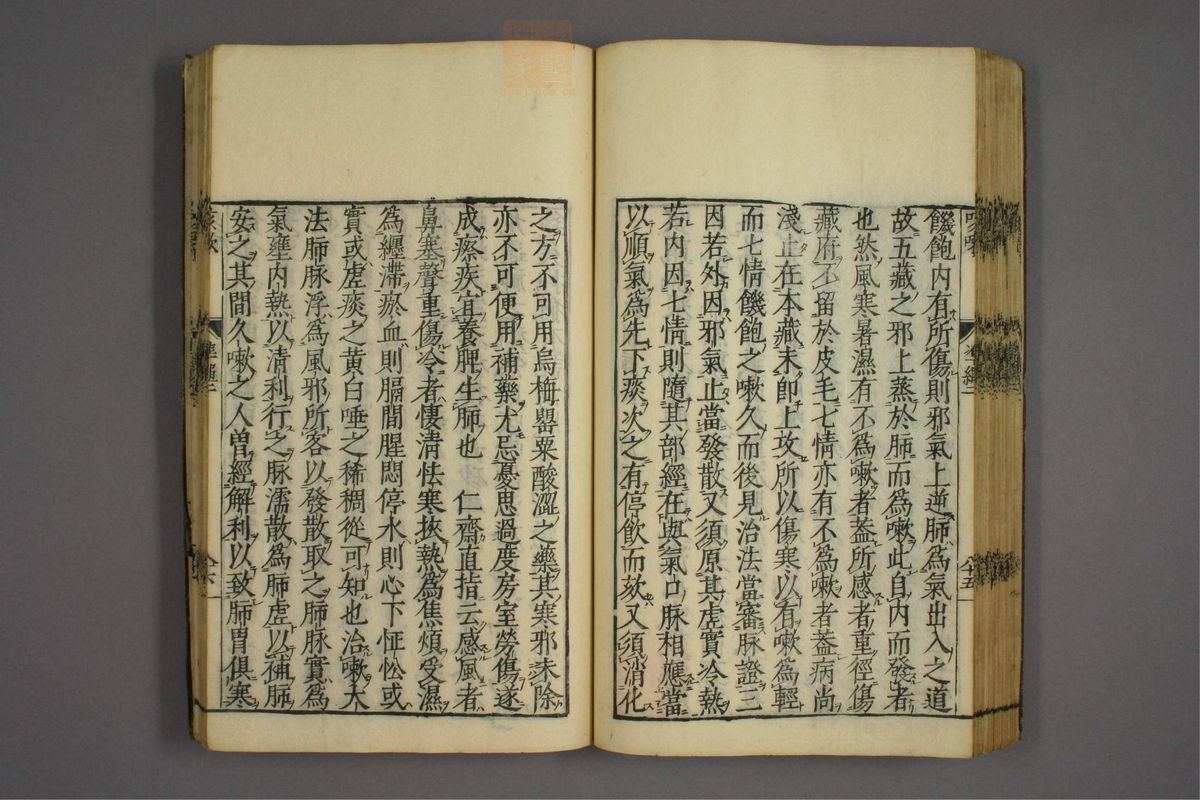 饑飽内有所傷則邪氣上逆肺為氣出入之道
故五藏之邪上蒸於肺而為嗽此自内而發者
也然風寒暑濕有不為嗽者葢所感者重徑傷
藏府不留於皮毛七情亦有不為嗽者葢病尚
淺止在本藏未即上攻所以傷寒以有嗽為輕
而七情饑飽之嗽久而後見治法當審脉證三
因若外因邪氣止當發散又須原其虛實冷熱
若内因七情則隨其部經在與氣口脉相應當
以順氣為先下痰次之有停飲而欬又須消化
之方不可用烏梅罌粟酸澀之藥其寒邪未除
亦不可便用補藥尤忌憂思過度房室勞傷遂
成瘵疾宜養脾生肺也 仁齋直指云感風者
鼻塞聲重傷冷者悽清怯寒挾熱為焦煩受濕
為纏滯瘀血則膈間腥悶停水則心下怔忪或
實或虛痰之黄白唾之稀稠從可知也治嗽大
法肺脉浮為風邪所客以發散取之肺脉實為
氣壅内熱以清利行之脉濡散為肺虛以補肺
安之其間久嗽之人曽經解利以致肺胃俱寒